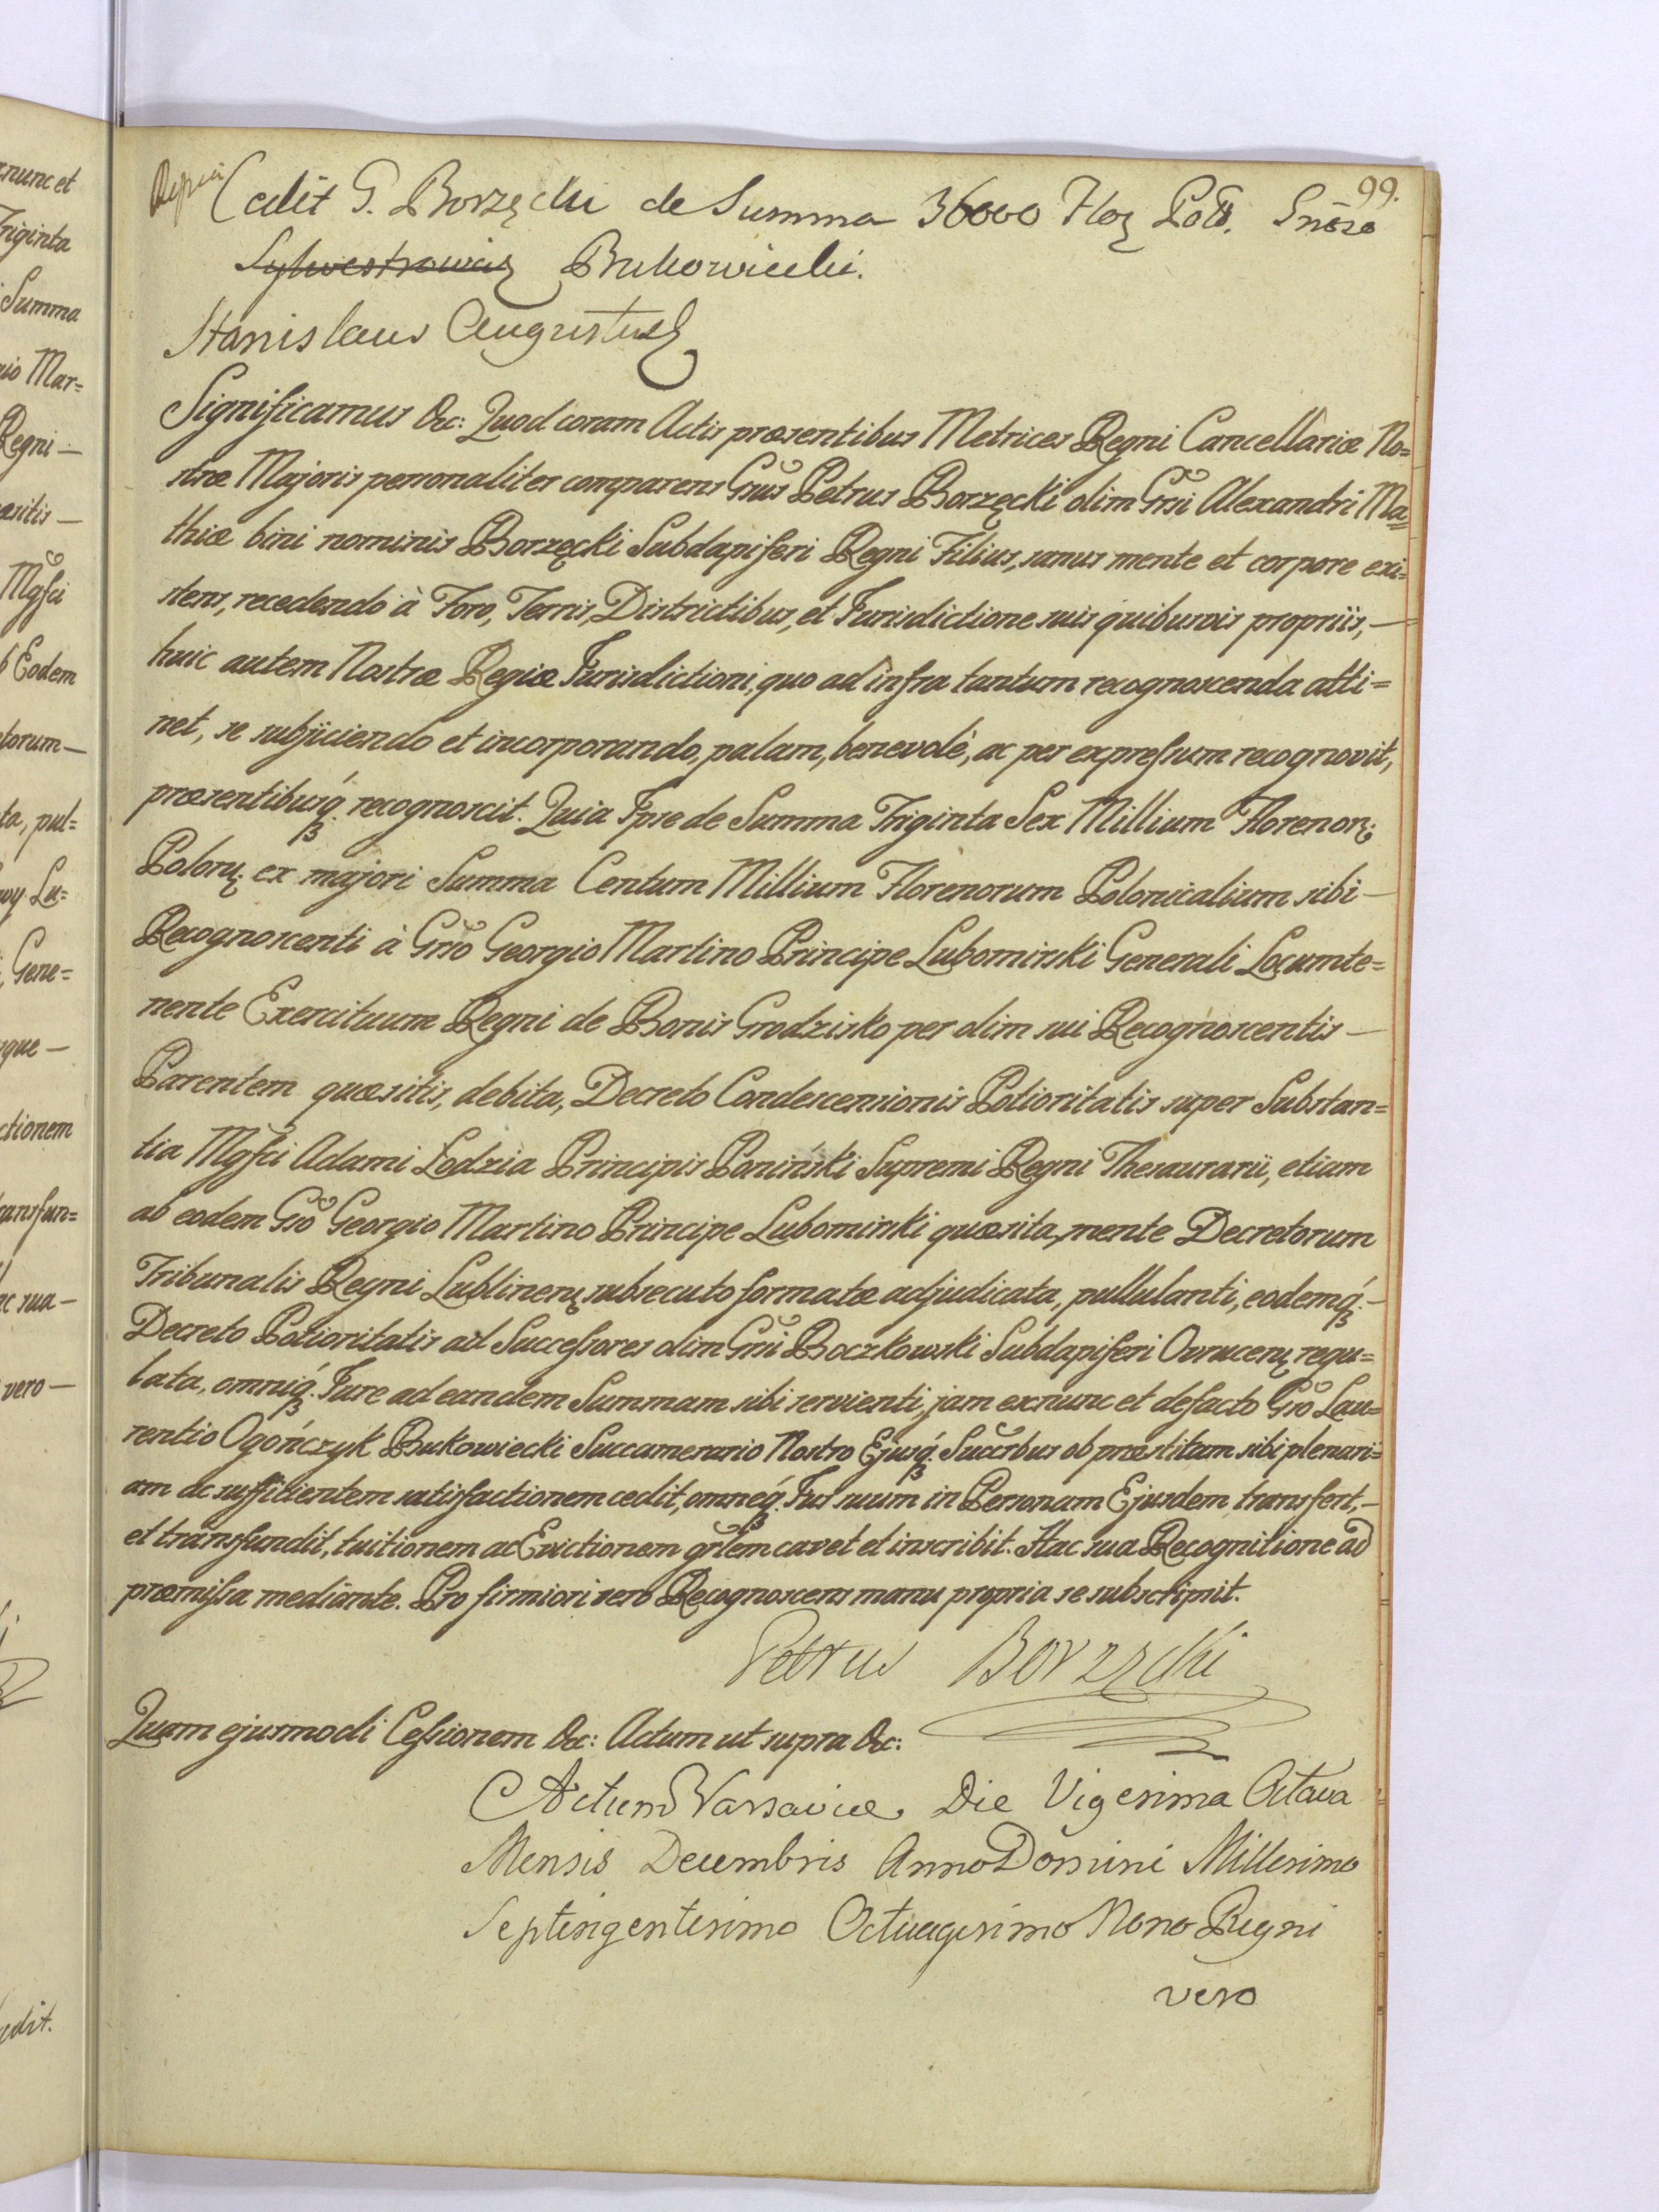 99.
Cedit G. Borzęcki de Summa 36000 Flor Poll. Gnoso
Sylwestrowicz Bukowiecki.
Stanislaus Augustus
Significamus &c: Quod coram Actis præsentibus Metrices Regni Cancellariæ No=
stræ Majoris personaliter comparens Gnus Petrus Borzęcki olim Gnsi Alexandri Ma=
thiæ bini nominis Borzęcki Subdapiferi Regni Filius, sanus mente et corpore exi=
stens, recedendo à Foro, Terris, Districtibus, et Jurisdictione suis quibusvis propriis, —
huic autem Nostræ Regiæ Jurisdictioni, quo ad infra tantum recognoscenda atti=
net, se subjiciendo et incorporando, palam, benevolè, ac per expressum recognovit,
præsentibusq. recognoscit. Quia Ipse de Summa Triginta Sex Millium Florenor.
Polorų. ex majori Summa Centum Millium Florenorum Polonicalium sibi —
Recognoscenti à Grso Georgio Martino Principe Lubomirski Generali Locumte=
nente Exercituum Regni de Bonis Grodzisko per olim sui Recognoscentis —
Parentem quæsitis, debita, Decreto Condescensionis Potioritatis super Substan=
tia Mgfci Adami Łodzia Principis Poniński Supremi Regni Thesaurarii, etiam
ab eodem Gso Georgio Martino Principe Lubomirski quæsita, mente Decretorum
Tribunalis Regni Lublinenų subsecuto formatæ adjudicata, pullulanti, eodemq. —
Decreto Potioritatis ad Successores olim Grsi Boczkowski Subdapiferi Ovrucenų regu=
lata, omniq. Jure ad eandem Summam sibi servienti, jam exnunc et defacto Gso Lau=
rentio Ogończyk Bukowiecki Succamerario Nostro Ejusq. Sucċrbus ob præstitam sibi plenari=
am ac sufficientem satisfactionem cedit, omneq. Jus suum in Personam Ejusdem transfert, —
et transfundit, tuitionem ac Evictionem grlem cavet et inscribit. Hac sua Recognitione ad
præmissa mediante. Pro firmiori vero Recognoscens manu propria se subscripsit.
Petrus Borzęcki
Quam ejusmodi Cessionem &c: Actum ut supra &c:
Actum Varsaviæ Die Vigesima Octava
Mensis Decembris Anno Domini Millesimo
Septingentesimo Octuagesimo Nono Regni
vero